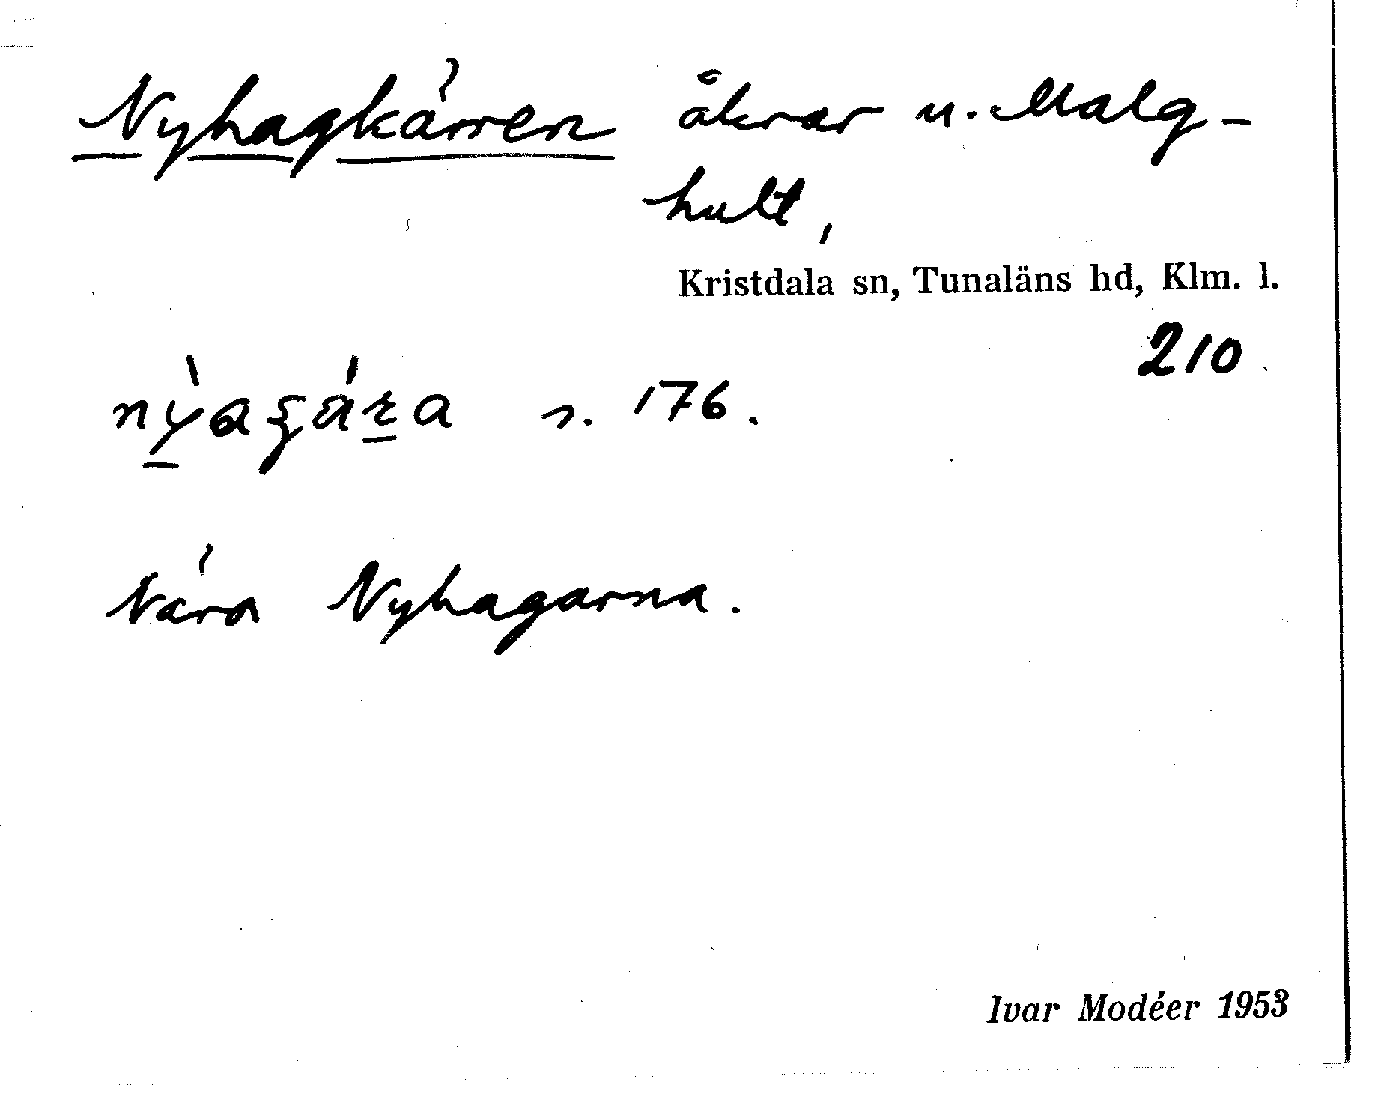 Nyhagkärren åkrar u. Malg-
hult,
Kristdala sn, Tunaläns hd, Klm. l.
210
s. 176.
Nära Nyhagarna.
Ivar Modéer 1953